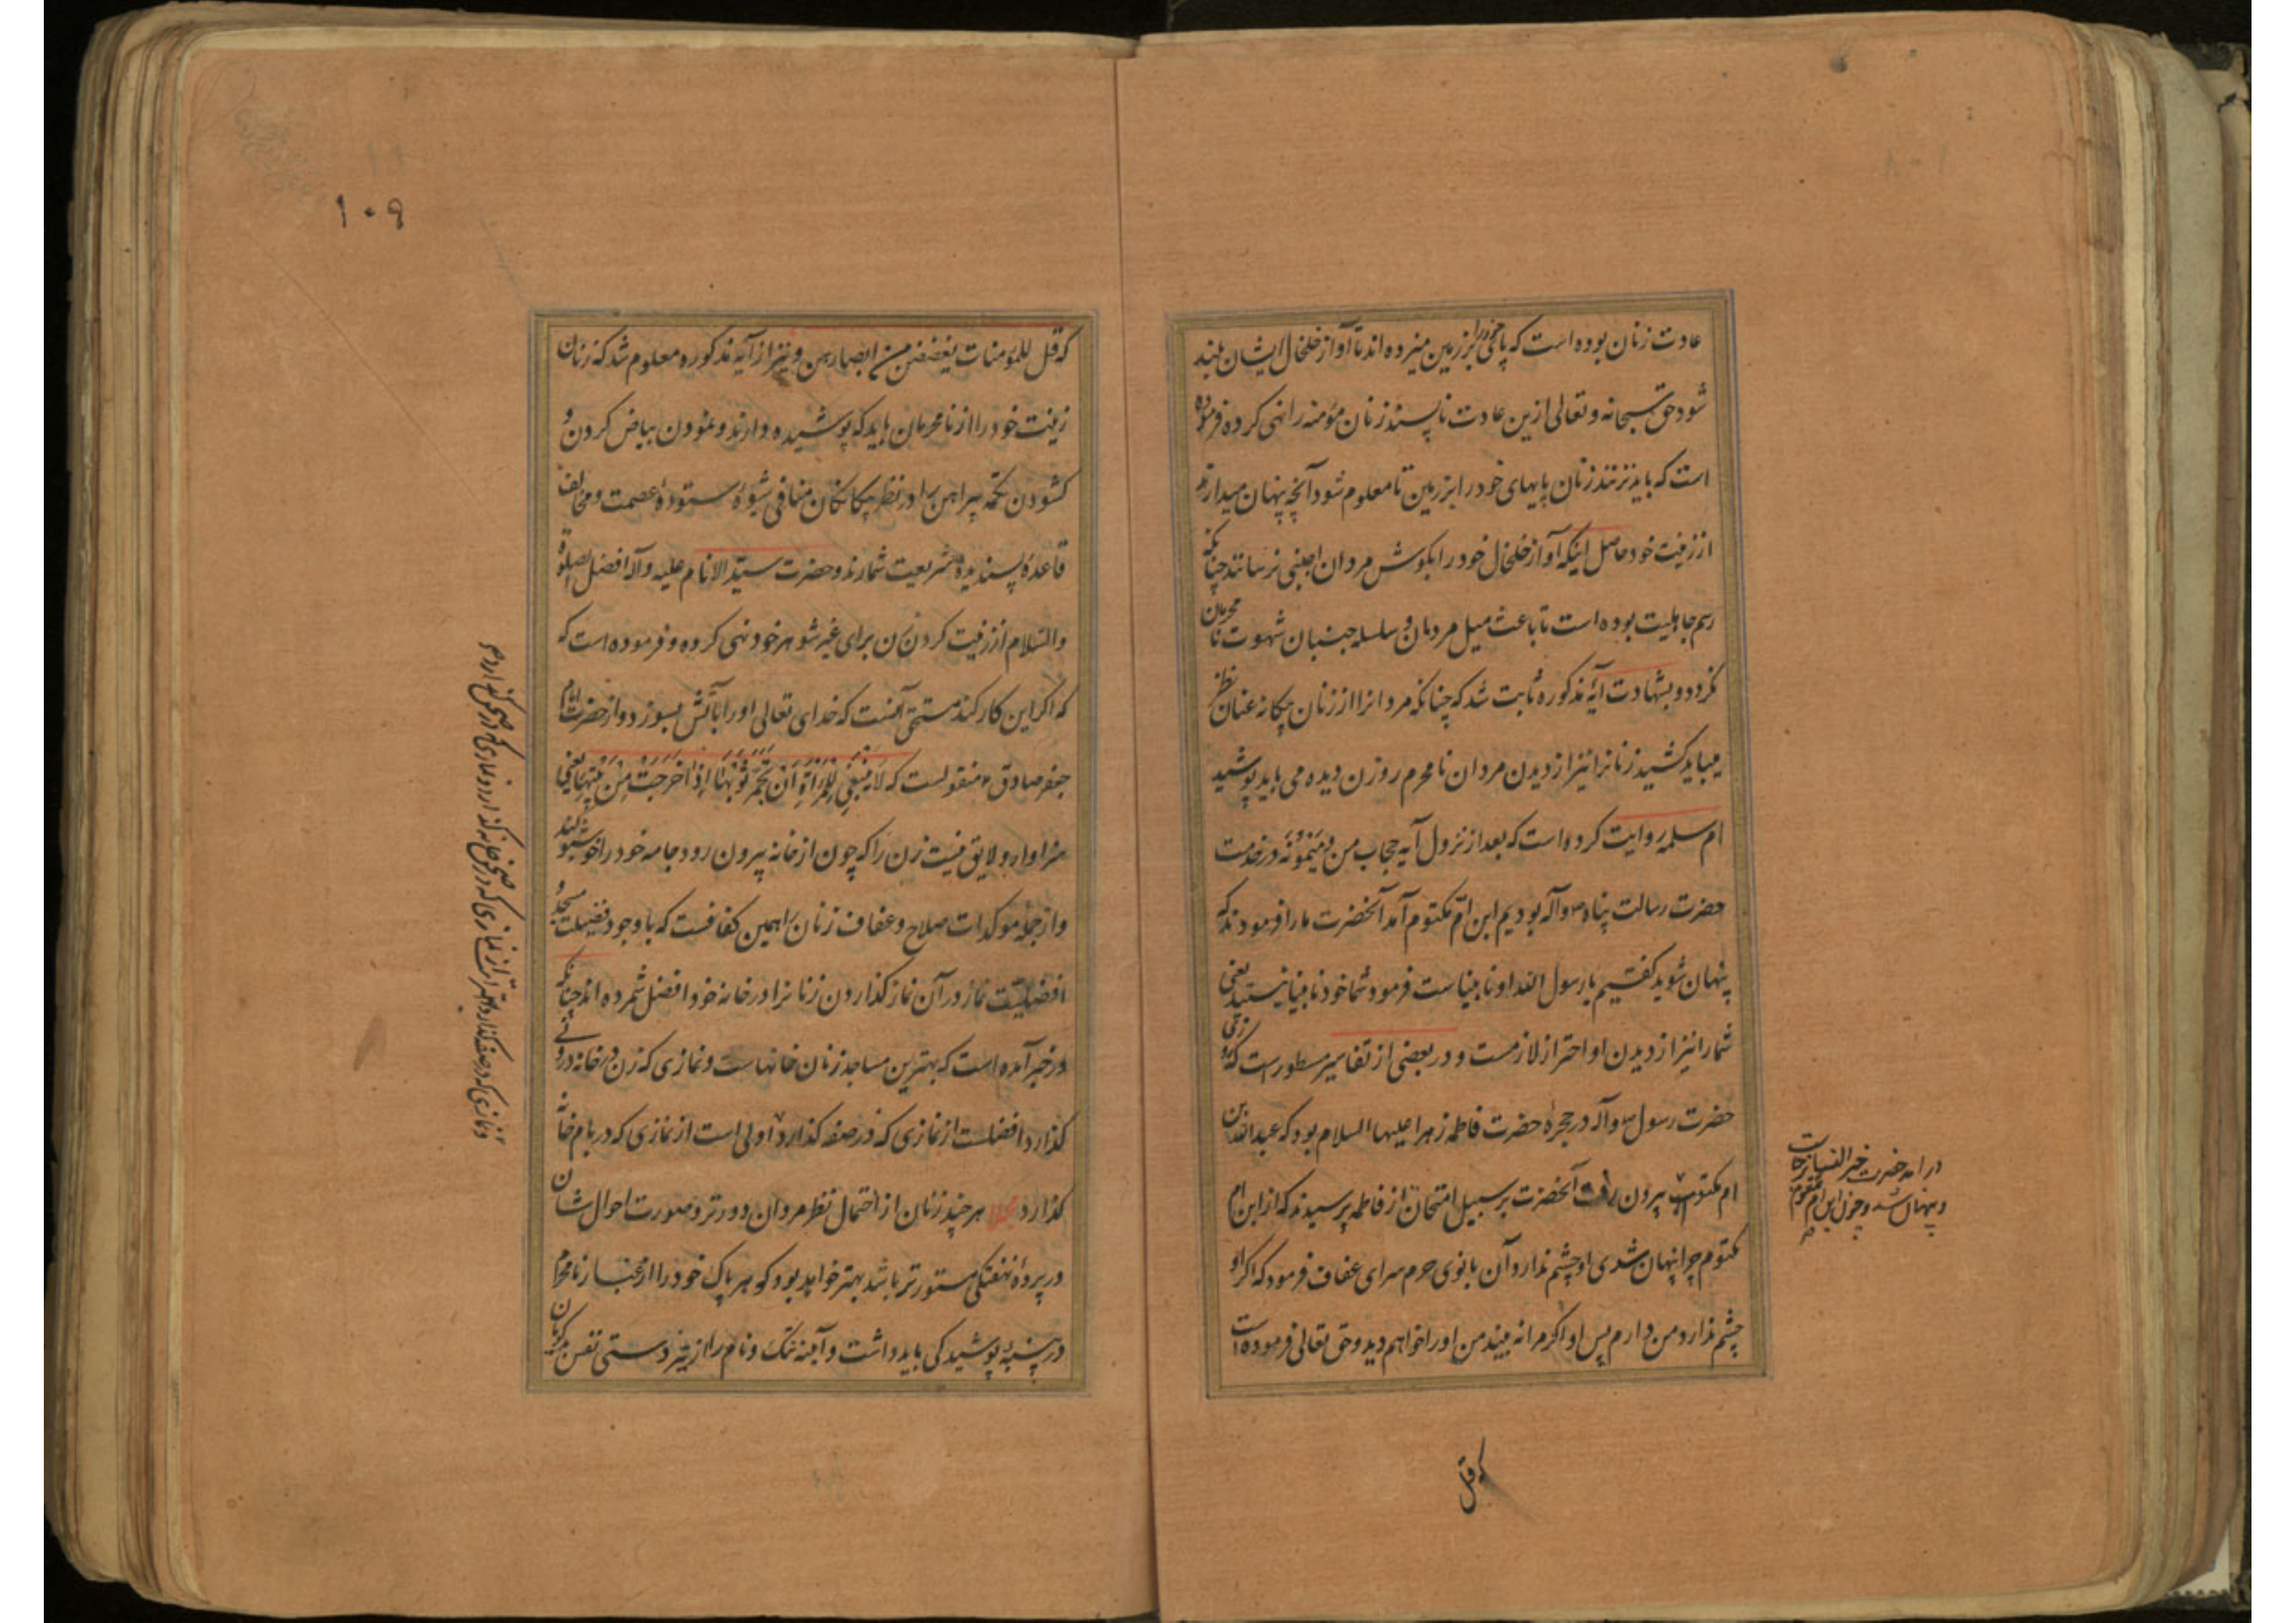 عادت زنان بوده است که پا خود را بر زمین میزده اند تا آواز خلخال ایشان بلند
شود حق سبحانه و تعالی ازین عادت ناپسند زنان مؤمنه را نهی کرده فرموده
است که باید نزنند زنان پایهای خود را بر زمین تا معلوم شود آنچه پنهان میدارند
از زینت خود حاصل اینکه آواز خلخال خود را بکوش مردان اجنبی نرسانند چنانکه
رسم جاهلیت بوده است تا باعث میل مردمان و سلسله جنبان شهوت نا محرمان
نکردد و بشهادت آیهٔ مذکوره ثابت شد که چنانکه مردانرا از زنان بیکانه عنان نظر
میباید کشید زنانرا نیز از دیدن مردان نامحرم روزن دیده می باید پوشید
ام سلمه روایت کرده است که بعد از نزول آیه حجاب من و میمونه در خدمت
حضرت رسالت پناه ص وآله بودیم ابن امّ مکتوم آمد آنحضرت ما را فرمودند که
پنهان شوید کفتیم یا رسول الله او نابیناست فرمود شما خود نابینا نیستید یعنی
شما را نیز از دیدن او احتراز لازمست و در بعضی از تفاسیر مسطور است که روزی
حضرت رسول ص وآله در حجرهٔ حضرت فاطمه زهرا علیها السلام بود که عبدالله بن
ام مکتوم بیرون رفت آنحضرت بر سبیل امتحان از فاطمه پرسیدند که از ابن ام
مکتوم چرا پنهان شدی او چشم ندارد آن بانوی حرم سرای عفاف فرمود که اگر او
چشم ندارد من دارم پس او اکر مرا نه بیند من او را خواهم دید و حق تعالی فرموده است
در آمد حضرت خیر النساء برخاست
و پنهان شد و چون ابن ام مکتوم
که قل
۱۰۹
که قل للمؤمنات یغضضن من ابصارهن و نیز از آیه مذکوره معلوم شد که زنان
زینت خود را از نامحرمان باید که پوشیده دارند و نمودن بیاض کردن و
کشودن تکمه پیراهن را در نظر بیکانکان منافی شیوهٔ ستودهٔ عصمت و مخالف
قاعدهٔ پسندیدهٔ شریعت شمارند و حضرت سیّد الانام علیه وآله افضل الصلوة
والسّلام از زینت کردن زن برای غیر شوهر خود نهی کرده و فرموده است که
که اکر این کار کند مستحق آنست که خدای تعالی او را بآتش بسوزد و از حضرت امام
جعفر صادق ع منقولست که لا ینبغی للمرأة ان تجمر ثوبها اذا خرجت من بیتها یعنی
سزاوار و لایق نیست زن را که چون از خانه بیرون رود جامه خود را خوشبو کند
و از جمله موکدات صلاح و عفاف زنان را همین کفافست که با وجود فضیلت مسجد و
افضلیّت نماز در آن نماز کذاردن زنانرا در خانه خود افضل شمرده اند چنانکه
در خبر آمده است که بهترین مساجد زنان خانهاست و نمازی که زن در خانه درونی
کذارد افضلست از نمازی که در صفه کذارد اولی است از نمازی که در بام خانه
کذارد مجملا هر چند زنان از احتمال نظر مردان دورتر و صورت احوال شان
در پردهٔ نهفتکی مستورتر باشد بهتر خواهد بود کوهر پاک خود را از غبار نامحرمان
در پنبهٔ پوشیدکی باید داشت و آینه ننک و نام را از تیز دستی نفس
و نمازی که در صفه کذارد بهتر از نمازی که در صحن خانه کذارد و نمازی که در صحن کذارد